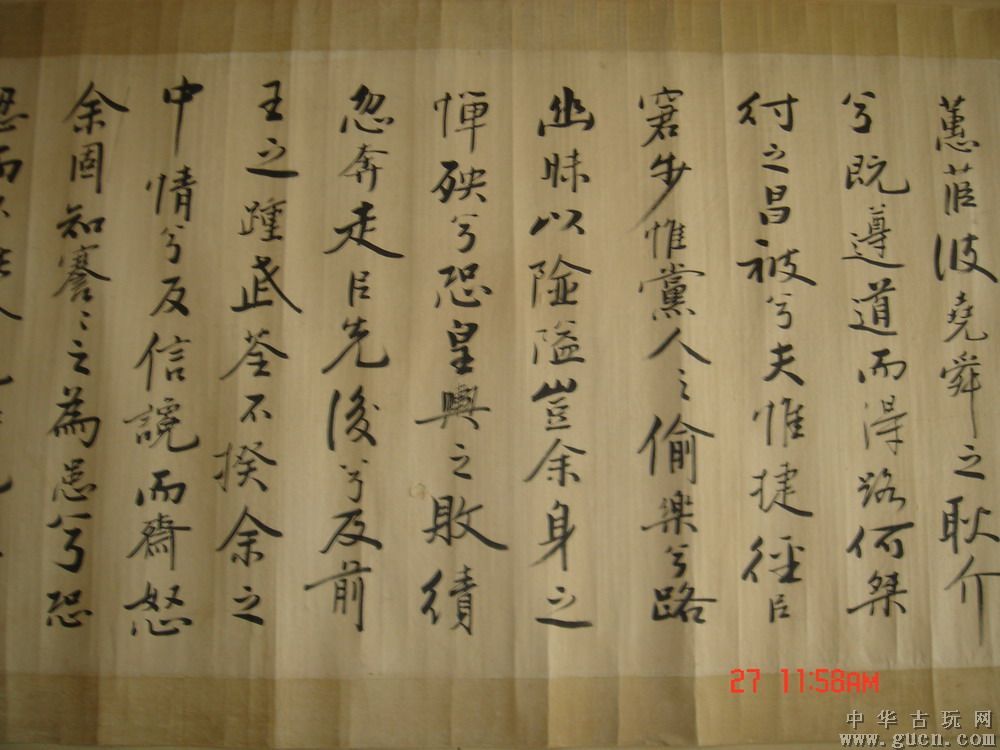 蕙茝彼堯舜之耿介
兮既遵道而得路何桀
付之昌被兮夫惟捷徑㠯
窘步惟黨人之偷樂兮路
幽昧以險隘豈余身之
憚殃兮恐皇輿之敗績
忽奔走㠯先後兮及前
王之踵武荃不揆余之
中情兮反信讒而齌怒
余固知謇〻之為患兮恐
忍而不
27 11:58AM
中华古玩网
www.gucn.com